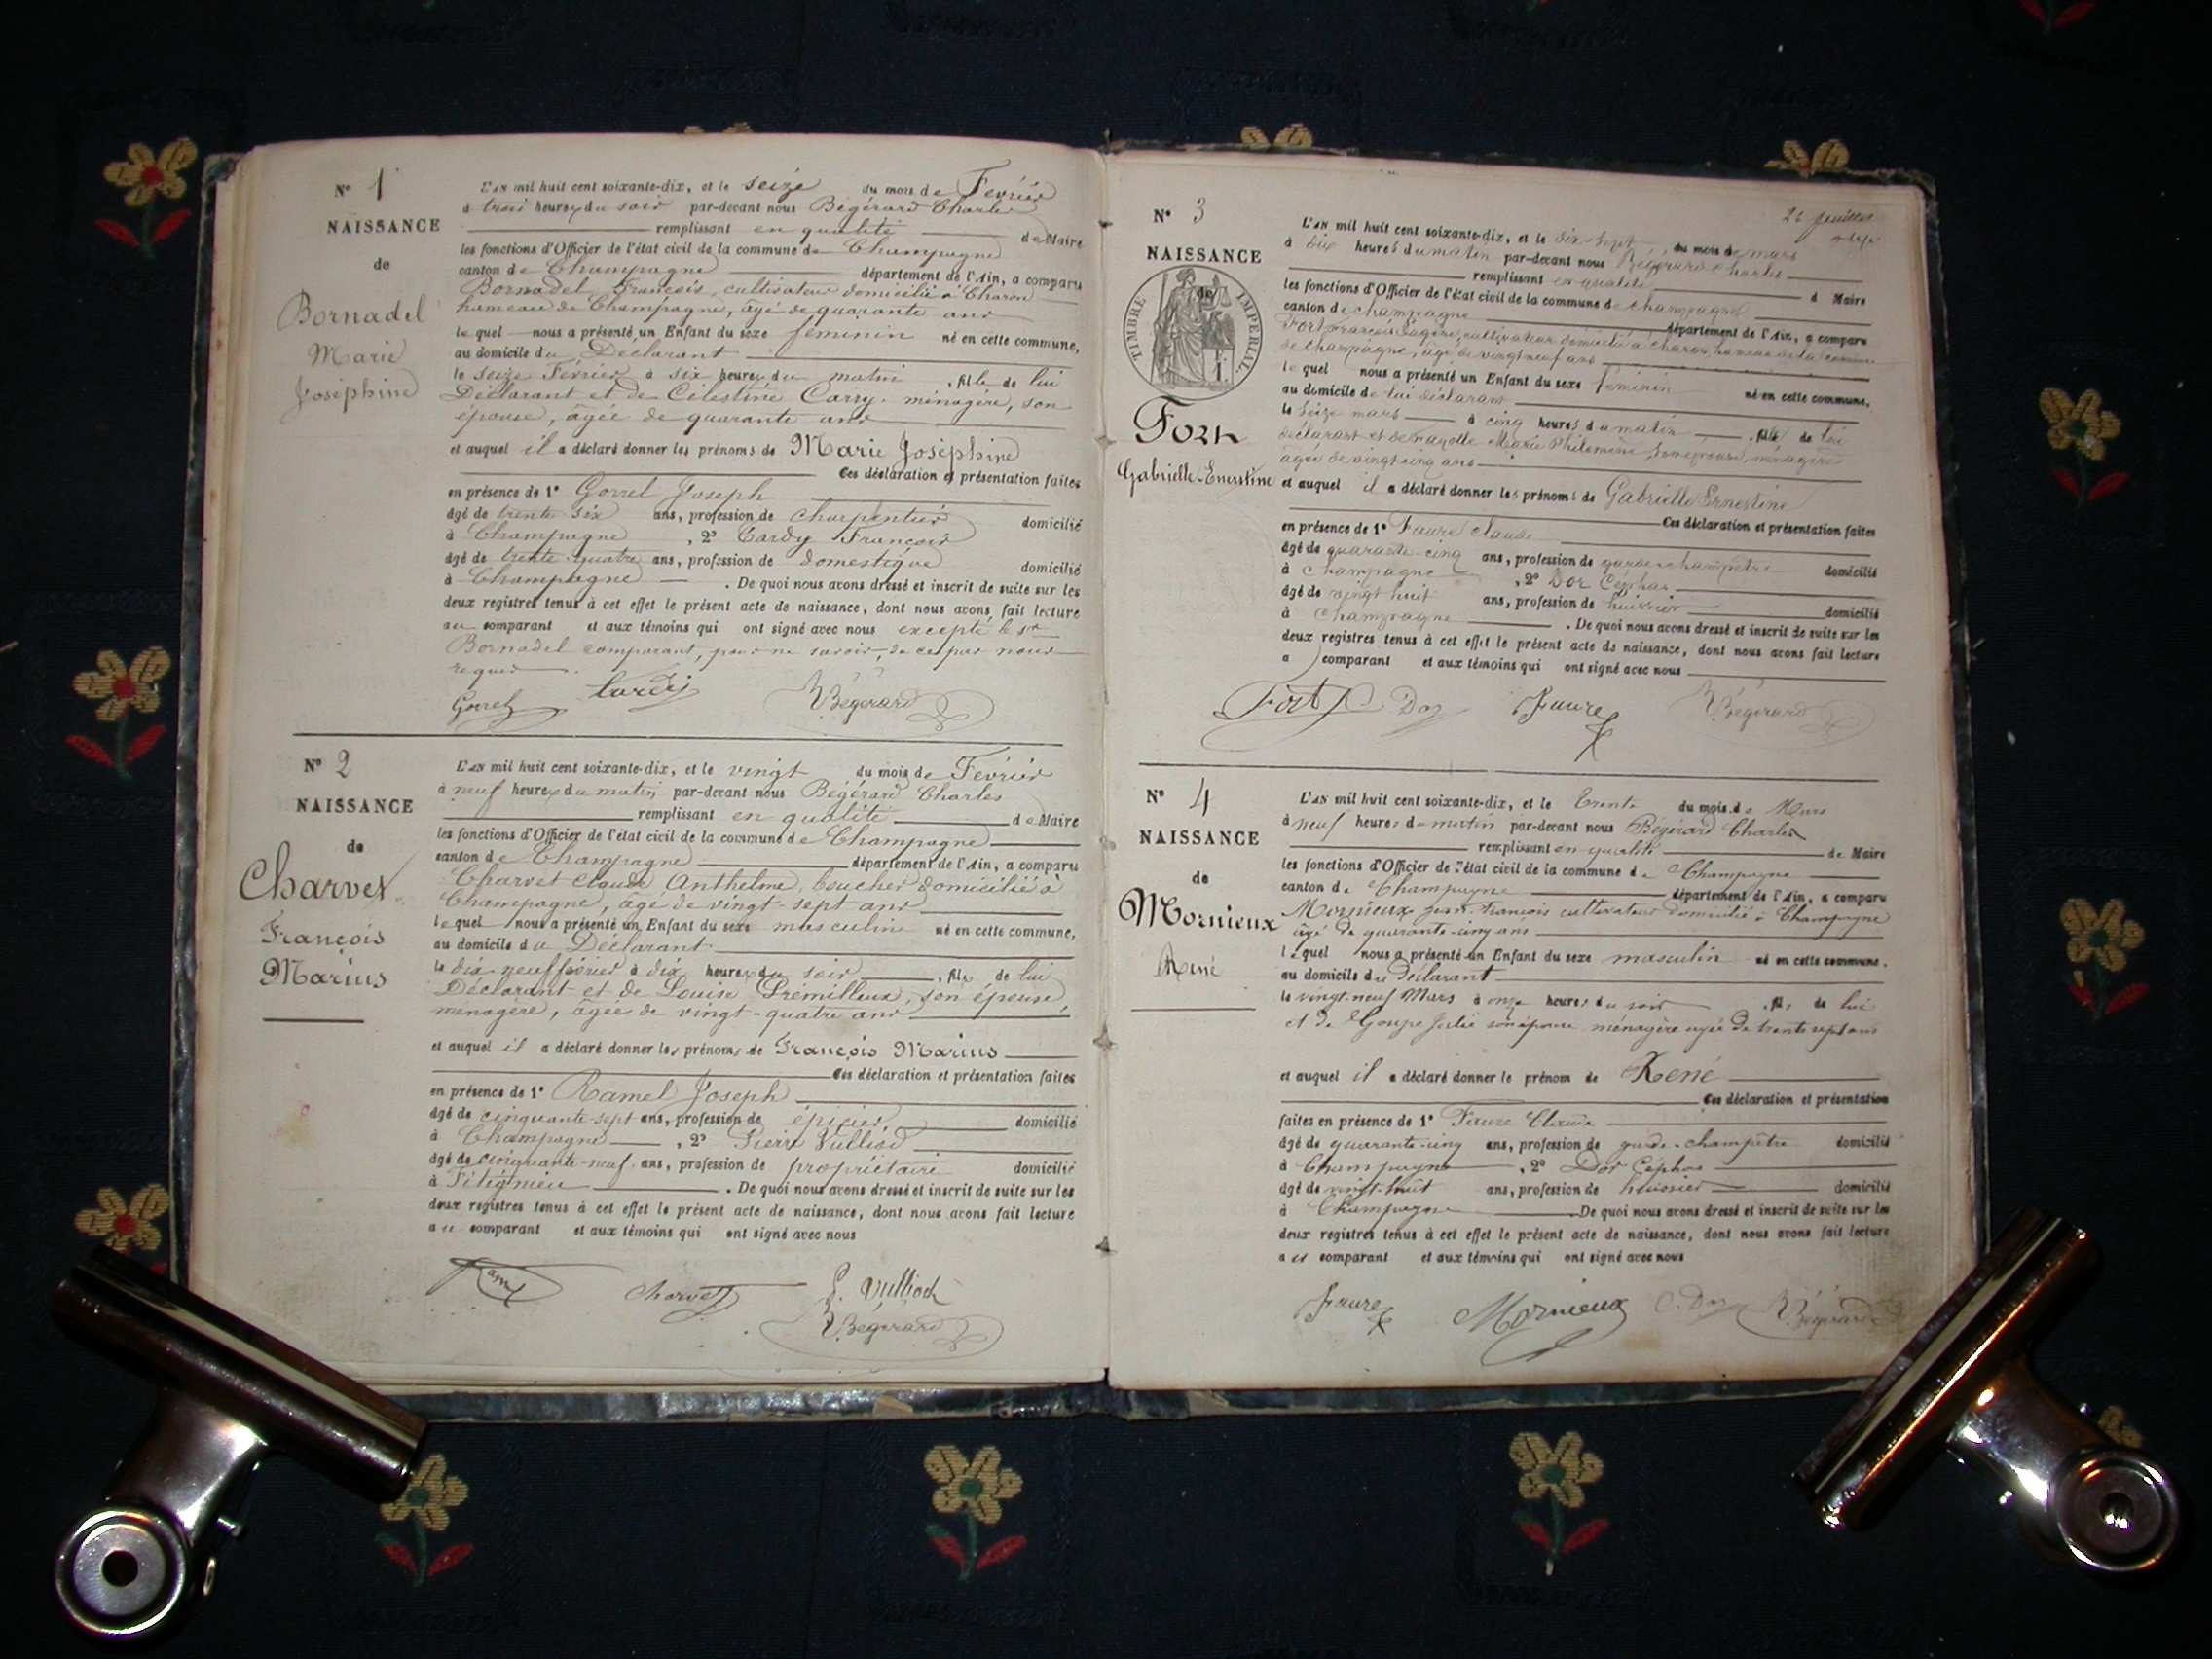 N° 1
NAISSANCE
de
Bornadel
Marie
Joséphine
L'AN mil huit cent soixante-dix, et le seize du mois de Février
à trois heures du soir par-devant nous Bégérard Charles
remplissant en qualité de Maire
les fonctions d'Officier de l'état civil de la commune de Champagne
canton de Champagne département de l'Ain, a comparu
Bornadel François, cultivateur domicilié à Charon
hameau de Champagne, âgé de quarante ans
lequel nous a présenté un Enfant du sexe féminin né en cette commune,
au domicile du Déclarant
le seize Février à six heures du matin, fille de lui
Déclarant et de Célestine Carry, ménagère, son
épouse, âgée de quarante ans
et auquel il a déclaré donner les prénoms de Marie Joséphine
Ces déclaration et présentation faites
en présence de 1° Gorrel Joseph
âgé de trente six ans, profession de charpentier domicilié
à Champagne, 2° Tardy François
âgé de trente-quatre ans, profession de domestique domicilié
à Champagne. De quoi nous avons dressé et inscrit de suite sur les
deux registres tenus à cet effet le présent acte de naissance, dont nous avons fait lecture
au comparant et aux témoins qui ont signé avec nous excepté le sr
Bornadel comparant, pour ne savoir, de ce par nous
requis.
Gorrel Tardy Bégérard
N° 2
NAISSANCE
de
Charvet
François
Marius
L'AN mil huit cent soixante-dix, et le vingt du mois de Février
à neuf heures du matin par-devant nous Bégérard Charles
remplissant en qualité de Maire
les fonctions d'Officier de l'état civil de la commune de Champagne
canton de Champagne département de l'Ain, a comparu
Charvet Claude Anthelme, boucher domicilié à
Champagne, âgé de vingt-sept ans
lequel nous a présenté un Enfant du sexe masculin né en cette commune,
au domicile du Déclarant
le dix-neuf février à dix heures du soir, fils de lui
Déclarant et de Louise Prémilleux, son épouse,
ménagère, âgée de vingt-quatre ans
et auquel il a déclaré donner les prénoms de François Marius
Ces déclaration et présentation faites
en présence de 1° Ramel Joseph
âgé de cinquante-sept ans, profession de épicier domicilié
à Champagne, 2° Pierre Vulliod
âgé de cinquante-neuf ans, profession de propriétaire domicilié
à Fitignieu. De quoi nous avons dressé et inscrit de suite sur les
deux registres tenus à cet effet le présent acte de naissance, dont nous avons fait lecture
au comparant et aux témoins qui ont signé avec nous
Ramel Charvet P. Vulliod
Bégérard
N° 3
NAISSANCE
de
TIMBRE IMPERIAL
Fort
Gabrielle-Ernestine
L'AN mil huit cent soixante-dix, et le dix-sept du mois de mars
à dix heures du matin par-devant nous Bégérard Charles
remplissant en qualité d Maire
les fonctions d'Officier de l'état civil de la commune de champagne
canton de champagne département de l'Ain, a comparu
Fort François Eugène, cultivateur domicilié à charon, hameau de la commune
de champagne, âgé de vingt neuf ans
lequel nous a présenté un Enfant du sexe féminin né en cette commune,
au domicile de lui déclarant
le seize mars à cinq heures du matin, fille de lui
déclarant et de Marie Philomène, son épouse, ménagère
agée de vingt cinq ans
et auquel il a déclaré donner les prénoms de Gabrielle Ernestine
Ces déclaration et présentation faites
en présence de 1° Faure Claude
âgé de quarante-cinq ans, profession de garde-champêtre domicilié
à champagne, 2° Dor Céphas
âgé de vingt huit ans, profession de huissier domicilié
à champagne. De quoi nous avons dressé et inscrit de suite sur les
deux registres tenus à cet effet le présent acte de naissance, dont nous avons fait lecture
a comparant et aux témoins qui ont signé avec nous
Fort Dor Faure Bégérard
N° 4
NAISSANCE
de
Mornieux
René
L'AN mil huit cent soixante-dix, et le trente du mois de Mars
à neuf heures du matin par-devant nous Bégérard Charles
remplissant en qualité de Maire
les fonctions d'Officier de l'état civil de la commune de Champagne
canton de Champagne département de l'Ain, a comparu
Mornieux Jean François cultivateur domicilié à Champagne
âgé de quarante-cinq ans
lequel nous a présenté un Enfant du sexe masculin né en cette commune,
au domicile du déclarant
le vingt-neuf Mars à onze heures du soir, fils de lui
et de Goupe Julie son épouse ménagère agée de trente sept ans
et auquel il a déclaré donner le prénom de René
Ces déclaration et présentation
faites en présence de 1° Faure Claude
âgé de quarante-cinq ans, profession de garde-champêtre domicilié
à Champagne, 2° Dor Céphas
âgé de vingt-huit ans, profession de huissier domicilié
à Champagne. De quoi nous avons dressé et inscrit de suite sur les
deux registres tenus à cet effet le présent acte de naissance, dont nous avons fait lecture
au comparant et aux témoins qui ont signé avec nous
Faure Mornieux C. Dor Bégérard